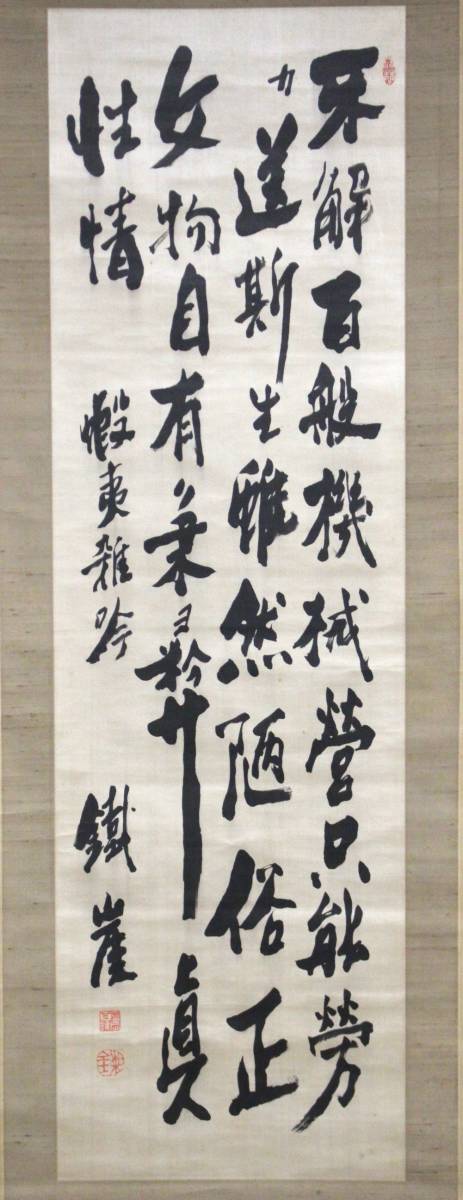 不解百般機械營只能勞
力送斯生雖然陋俗正
文物自有
眞
性情
蝦夷雜吟
鐵崖